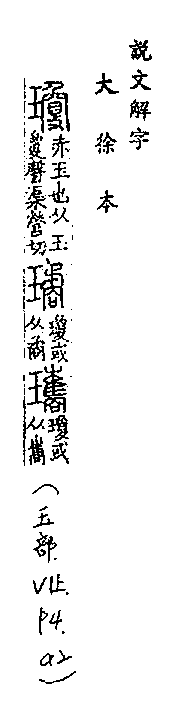 說文解字
大徐本
瓊 赤玉也从玉
夐聲渠營切
璚 瓊或
从矞
瓗 瓊或
从巂
(玉部.
P4.
a2)